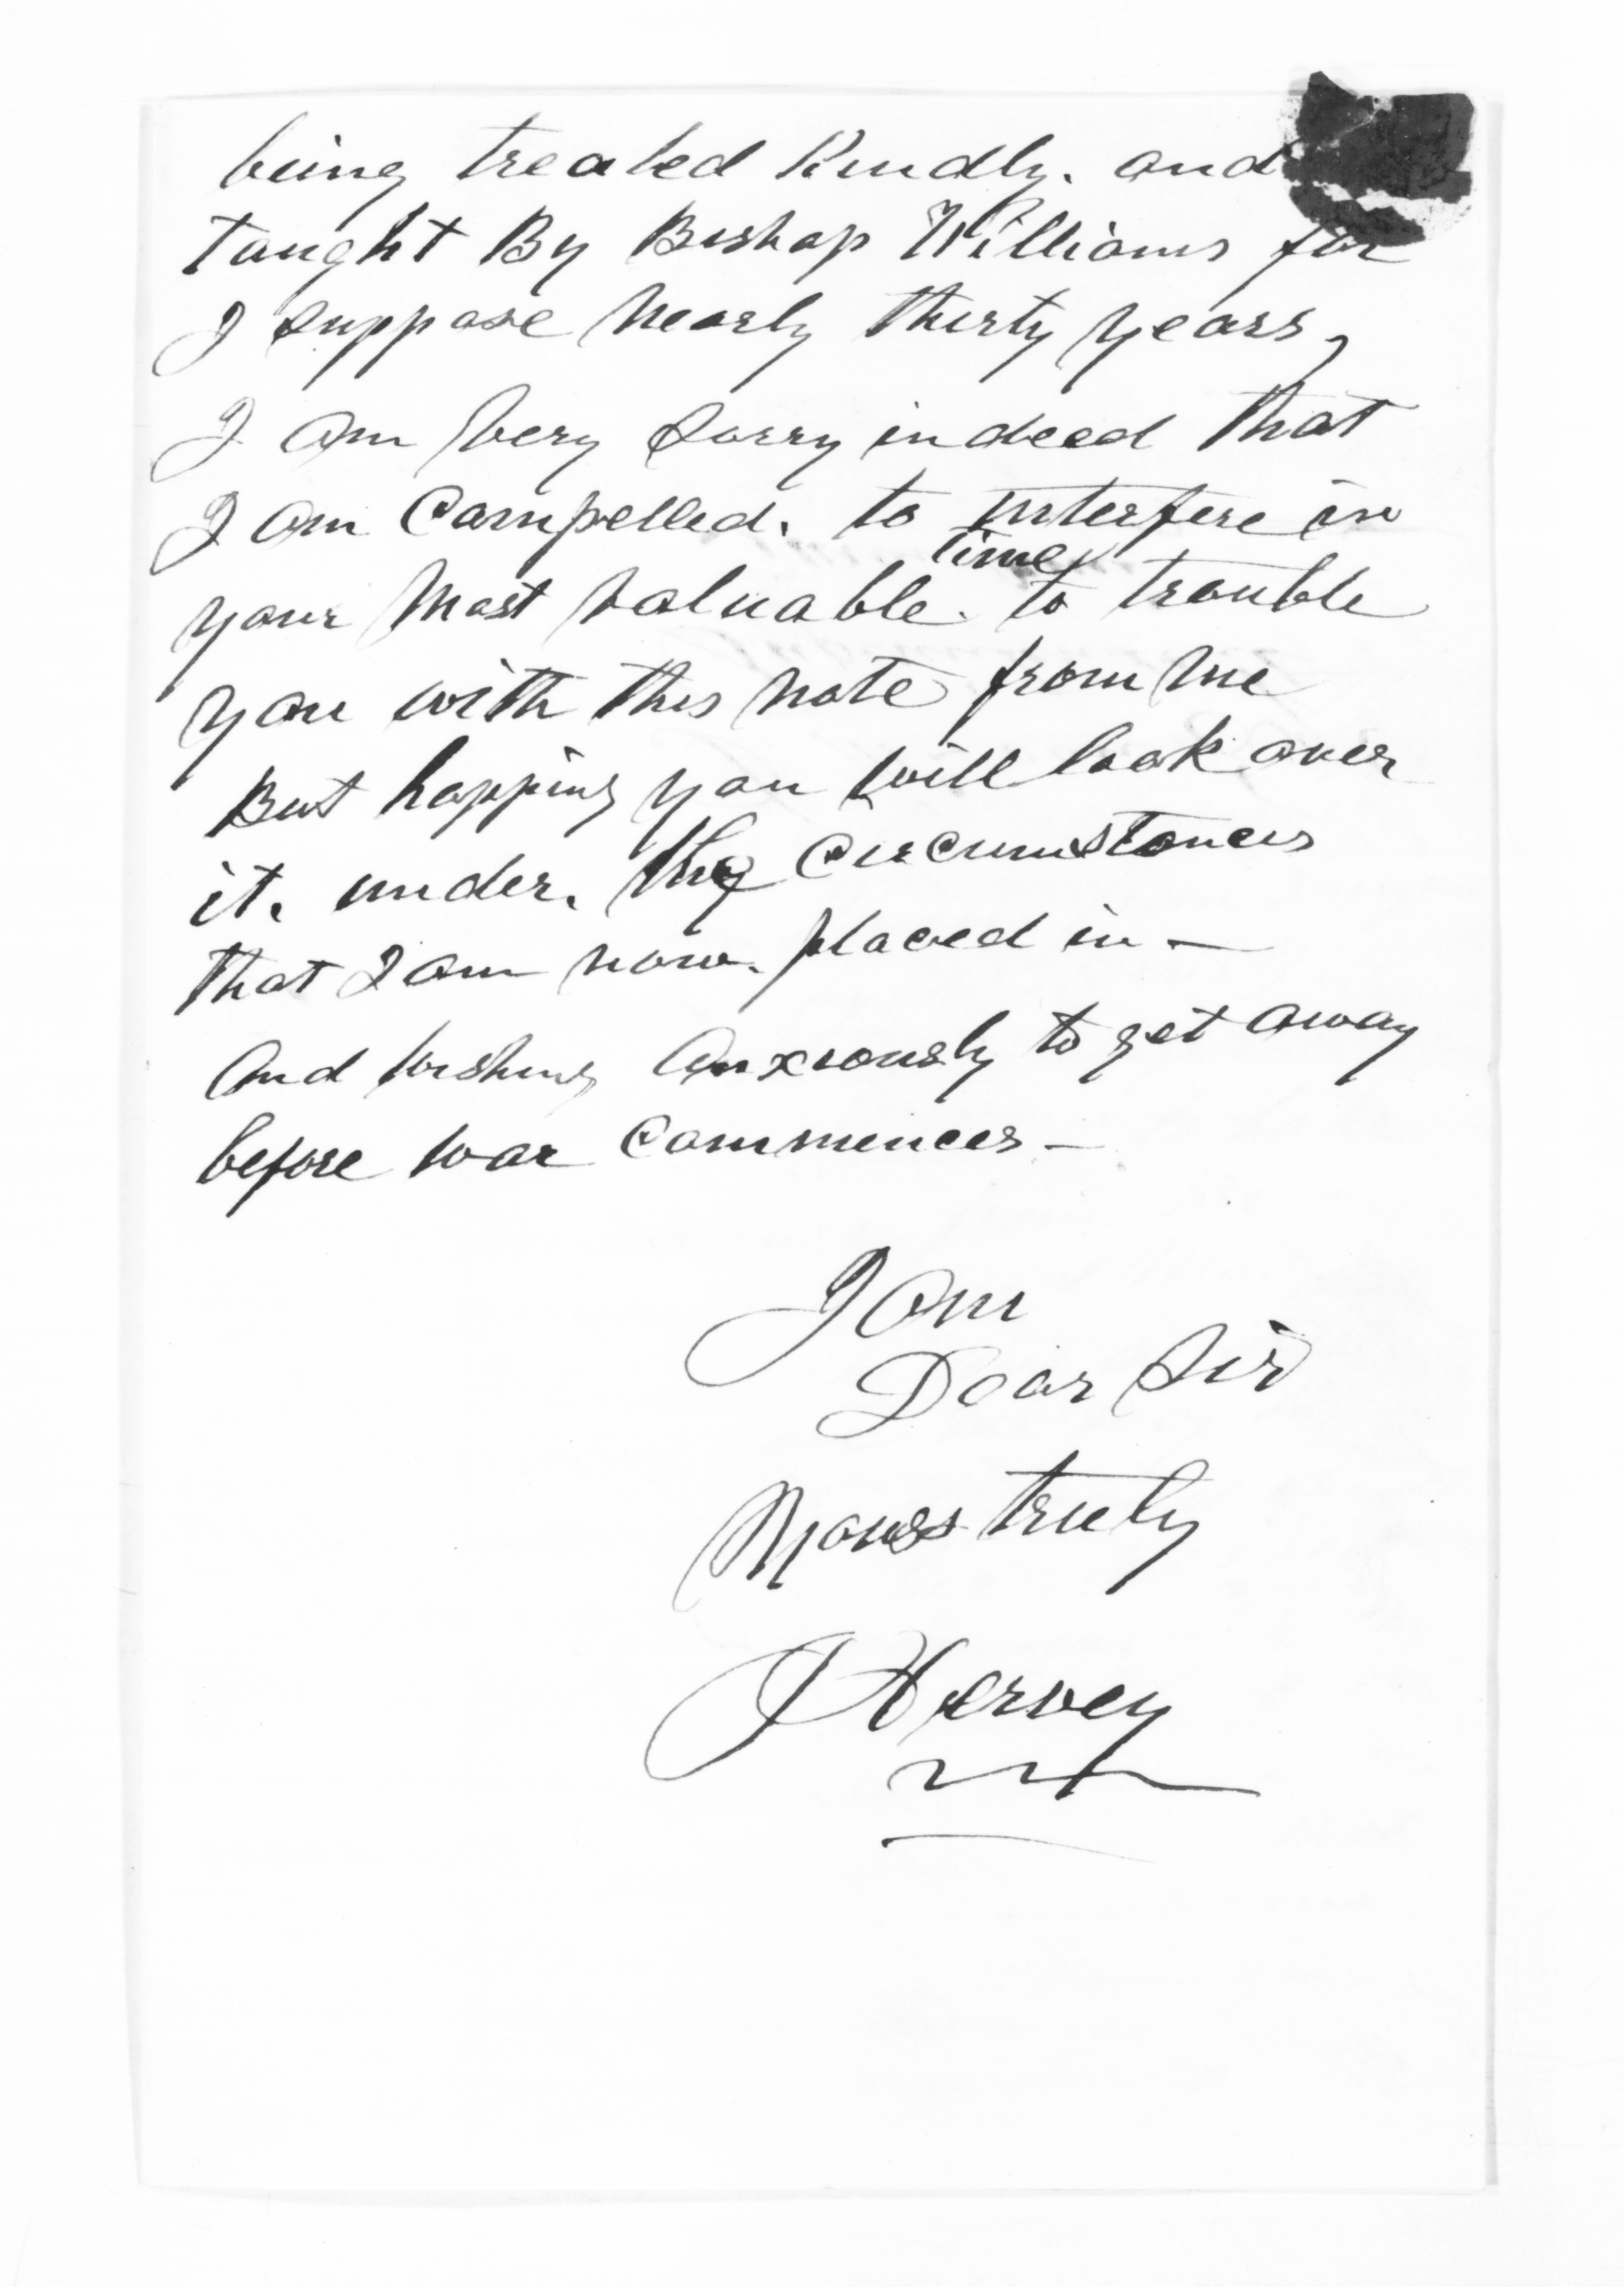 being treated kindly. and
taught By Bishop Williams for
I suppose nearly thirty years,
I am very sorry indeed that
I am Compelled. to interfere in
time
your most valuable. to trouble
you with this note from me
But hopping you will look over
it. under. the Circumstances
that I am now. placed in —
And wishing Anxiously to get away
before war Commences —
I am
Dear Sir
Yours truly
J Hervey